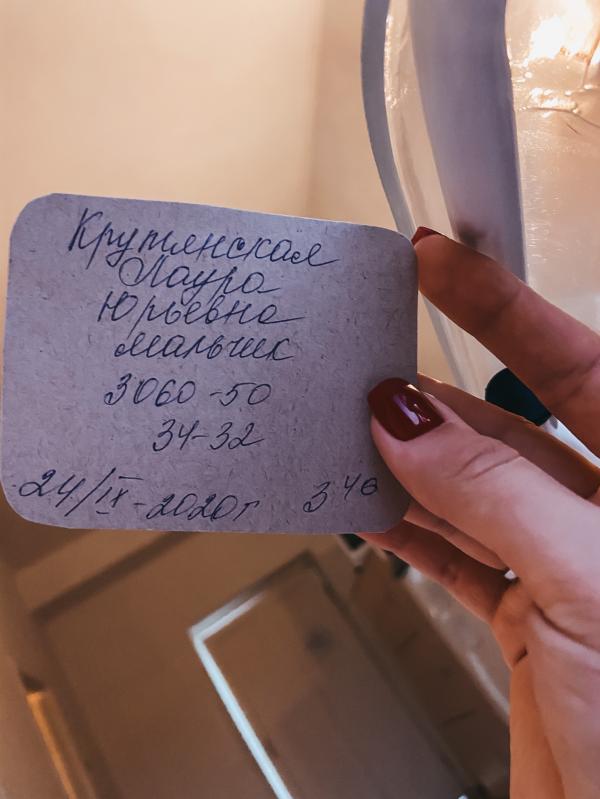 Крутянская
Лаура
Юрьевна
мальчик
3060-50
34-32
24/IX-2020г 3⁴⁰